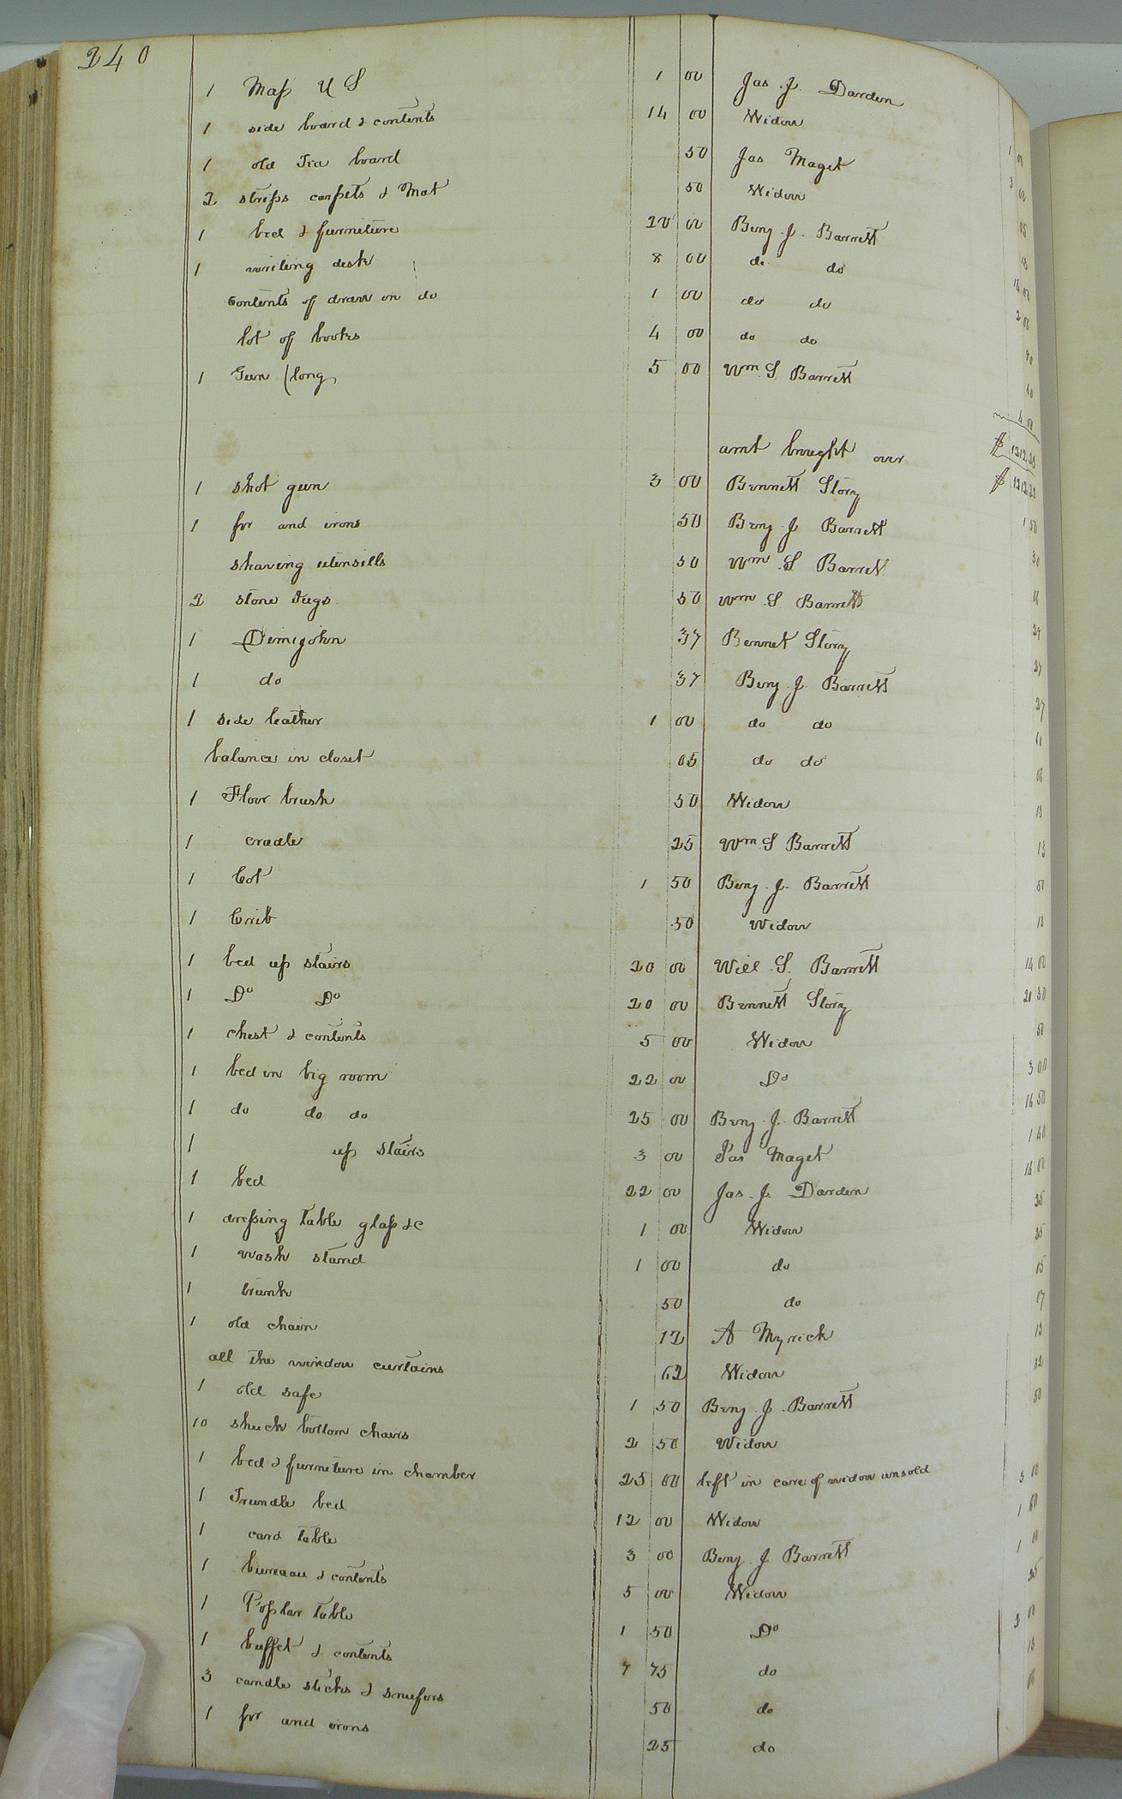 240
1 Map U S 1 00 Jas. J. Darden
1 side board & contents 14 00 Widow
1 old Tea board 50 Jas Maget
2 strips carpets & Mat 50 Widow
1 bed & furniture 20 00 Benj. J. Barrett
1 writing desk 8 00 do do
Contents of draw in do 1 00 do do
lot of books 4 00 do do
1 Gun (long) 5 00 Wm. S. Barrett
amt brought over $ 1212.23
$ 1212.23
1 shot gun 3 00 Bennett Story
1 pr and irons 50 Benj J Barrett
shaving utensills 50 Wm S Barrett
2 stone Jugs 50 Wm S. Barrett
1 Demijohn 37 Bennet Story
1 do 37 Benj. J. Barrett
1 side leather 1 00 do do
balance in closet 05 do do
1 Floor brush 50 Widow
1 cradle 25 Wm S Barrett
1 Cot 1 50 Benj. J. Barrett
1 Crib 50 Widow
1 bed up stairs 20 00 Will S. Barrett
1 Do Do 20 00 Bennett Story
1 chest & contents 5 00 Widow
1 bed in big room 22 00 Do
1 do do do 25 00 Benj. J. Barrett
1 up stairs 3 00 Jas Maget
1 bed 22 00 Jas. J. Darden
1 dressing table glass &c 1 00 Widow
1 wash stand 1 00 do
1 trunk 50 do
1 old chain 12 A Myrick
all the window curtains 62 Widow
1 old safe 1 50 Benj. J. Barrett
10 shuck bottom chairs 2 50 Widow
1 bed & furniture in chamber 25 00 left in care of widow unsold
1 Trundle bed 12 00 Widow
1 card table 3 00 Benj J. Barrett
1 bureau & contents 5 00 Widow
1 Poplar table 1 50 Do
1 buffet & contents 7 75 do
3 candle sticks & snufers 50 do
1 pr and irons 25 do